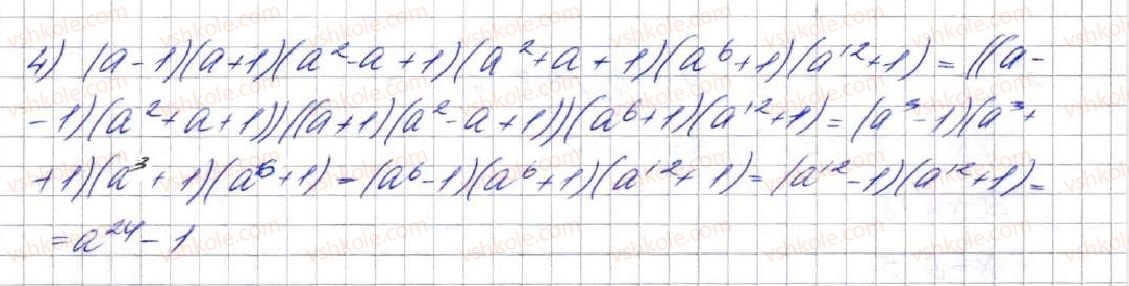 4) (a-1)(a+1)(a²-a+1)(a²+a+1)(a⁶+1)(a¹²+1) = ((a-
-1)(a²+a+1))((a+1)(a²-a+1))(a⁶+1)(a¹²+1) = (a³-1)(a³+
+1)(a³+1)(a⁶+1) = (a⁶-1)(a⁶+1)(a¹²+1) = (a¹²-1)(a¹²+1) =
= a²⁴ - 1